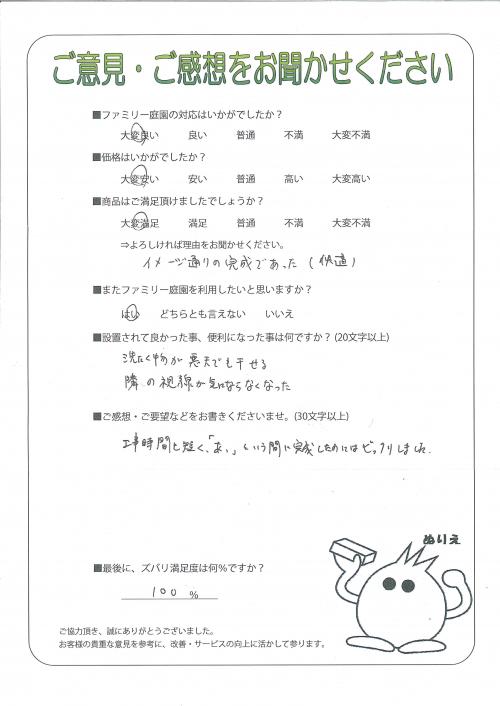 ご意見・ご感想をお聞かせください
■ファミリー庭園の対応はいかがでしたか？
大変良い 良い 普通 不満 大変不満
■価格はいかがでしたか？
大変安い 安い 普通 高い 大変高い
■商品はご満足頂けましたでしょうか？
大変満足 満足 普通 不満 大変不満
⇒よろしければ理由をお聞かせください。
イメージ通りの完成であった（快適）
■またファミリー庭園を利用したいと思いますか？
はい どちらとも言えない いいえ
■設置されて良かった事、便利になった事は何ですか？(20文字以上)
洗たく物が悪天でも干せる
隣の視線が気にならなくなった
■ご感想・ご要望などをお書きくださいませ。(30文字以上)
工事時間も短く、「あっ」という間に完成したのにはビックリしました。
ぬりえ
■最後に、ズバリ満足度は何％ですか？
100 ％
ご協力頂き、誠にありがとうございました。
お客様の貴重な意見を参考に、改善・サービスの向上に活かして参ります。